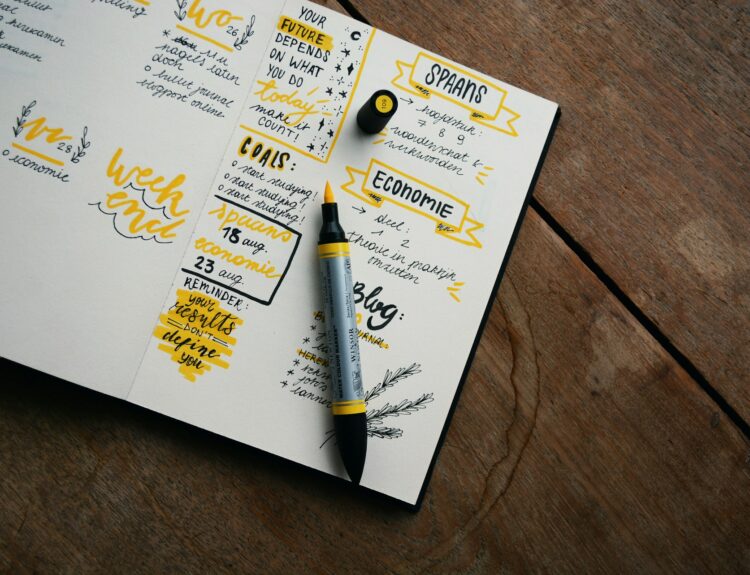 herexamen
WO
26
nagels laten
doen
o bullet journal
blogpost online
28
o economie
week
end
YOUR
FUTURE
DEPENDS
ON WHAT
YOU DO
today
make it
COUNT!
GOALS:
o start studying!
o start studying!
o start studying!
spaans
18 aug.
economie
23 aug.
REMINDER:
your
results
DON'T
define
you
SPAANS
→ hoofdstuk:
7 8 9
woordenschat &
werkwoorden
ECONOMIE
→ deel:
1 2
theorie in praktijk
omzetten
Blog:
WINSOR